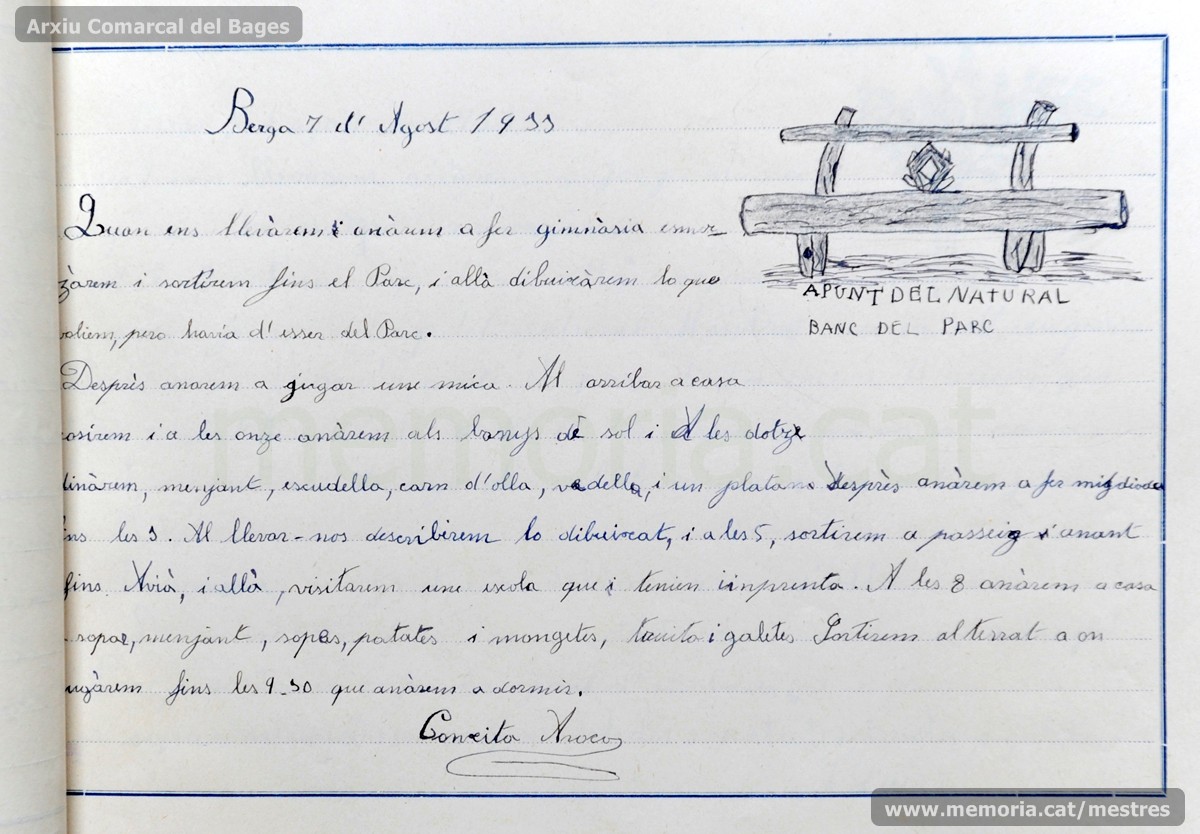 Arxiu Comarcal del Bages
Berga 7 d' Agost 1933
Quan ens llevàrem i anàrem a fer gimnàsia esmor-
zàrem i sortirem fins el Parc, i allà dibuixàrem lo que
voliem, pero havia d'esser del Parc.
APUNT DEL NATURAL
BANC DEL PARC
Desprès anarem a jugar une mica. Al arribar a casa
cosirem i a les onze anàrem als banys de sol i A les dotze
dinàrem, menjant, escudella, carn d'olla, vedella, i un platan. Desprès anàrem a fer migdiada
fins les 3. Al llevar-nos describirem lo dibuixat, i a les 5, sortirem a passeig i anant
fins Avià, i allà, visitarem une escola que tenien imprenta. A les 8 anàrem a casa
a sopar, menjant, sopes, patates i mongetes, truita i galetes Sortirem al terrat a on
jugàrem fins les 9-30 que anàrem a dormir.
Conxita
memoria.cat
www.memoria.cat/mestres